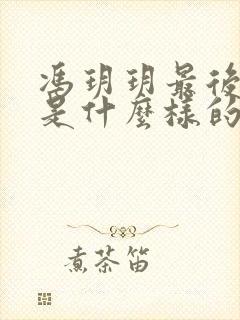 馮玥玥最後
是什麼樣的
煮茶笛